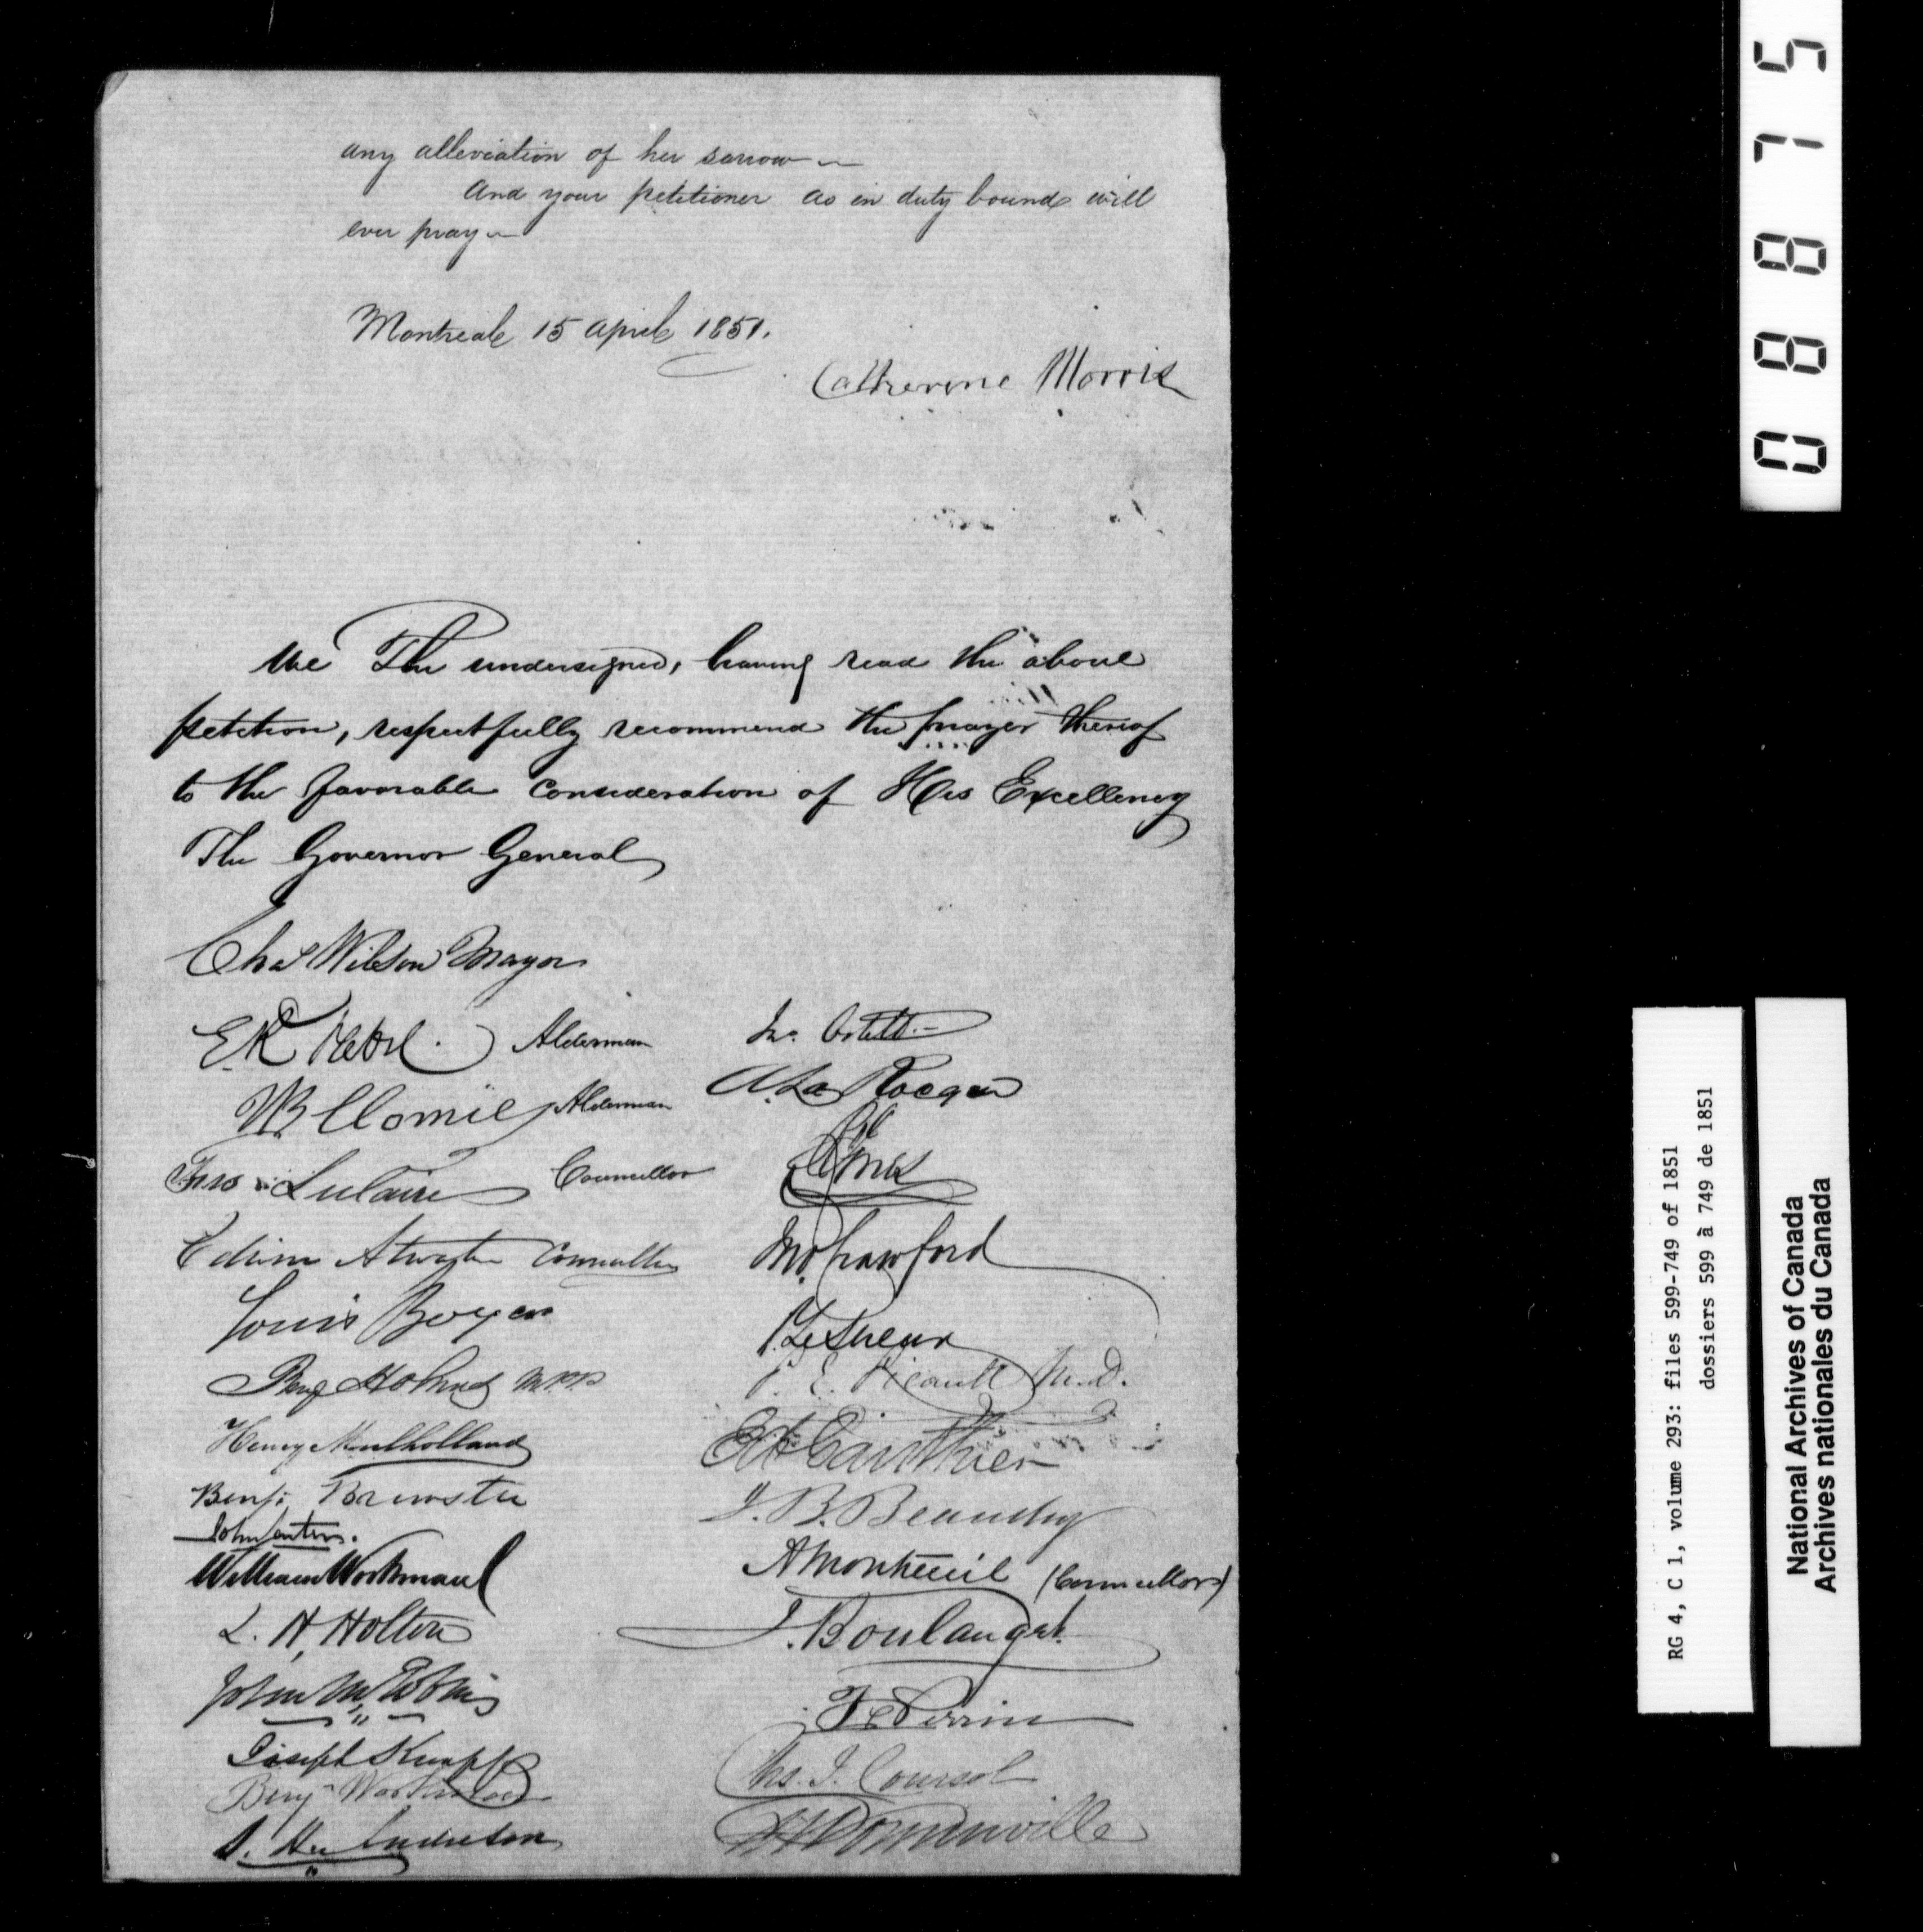 any alleviation of her sorrow
And your petitioner as in duty bound will
ever pray
Montreal 15 April 1851.
Catherine Morris
We The undersigned, having read the above
petition, respectfully recommend the prayer thereof
to the favorable consideration of His Excellency
The Governor General
Chs Wilson Mayor
E.R. Alderman
Alderman
Frs Leclaire Councillor
Edwin Atwater Councillor
Louis Boyer
Benj Holmes MPP
Henry Mulholland
Benj. Brewster
John
William Workman
L. H. Holton
John
Joseph Knapp
Benj Workman
Jno Ostell
A. La Rocque
Crawford
P. LeSueur
P. E. Picault M.D.
Gauthier
J. B. Beaudry
A Montreuil (Councillors)
J. Boulanget
F Perrin
Chs. J. Coursol
08875
RG 4, C 1, volume 293: files 599-749 of 1851
dossiers 599 à 749 de 1851
National Archives of Canada
Archives nationales du Canada